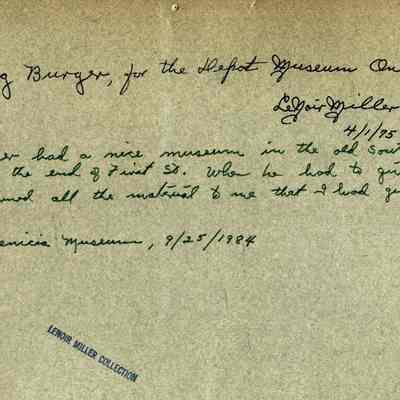 g Burger, for the Depot Museum On
LeNoir Miller
4/1/75
er had a nice museum in the old Sout
the end of First St. When he had to giv
rned all the material to me that I had g
enicia Museum, 9/25/1984
LENOIR MILLER COLLECTION